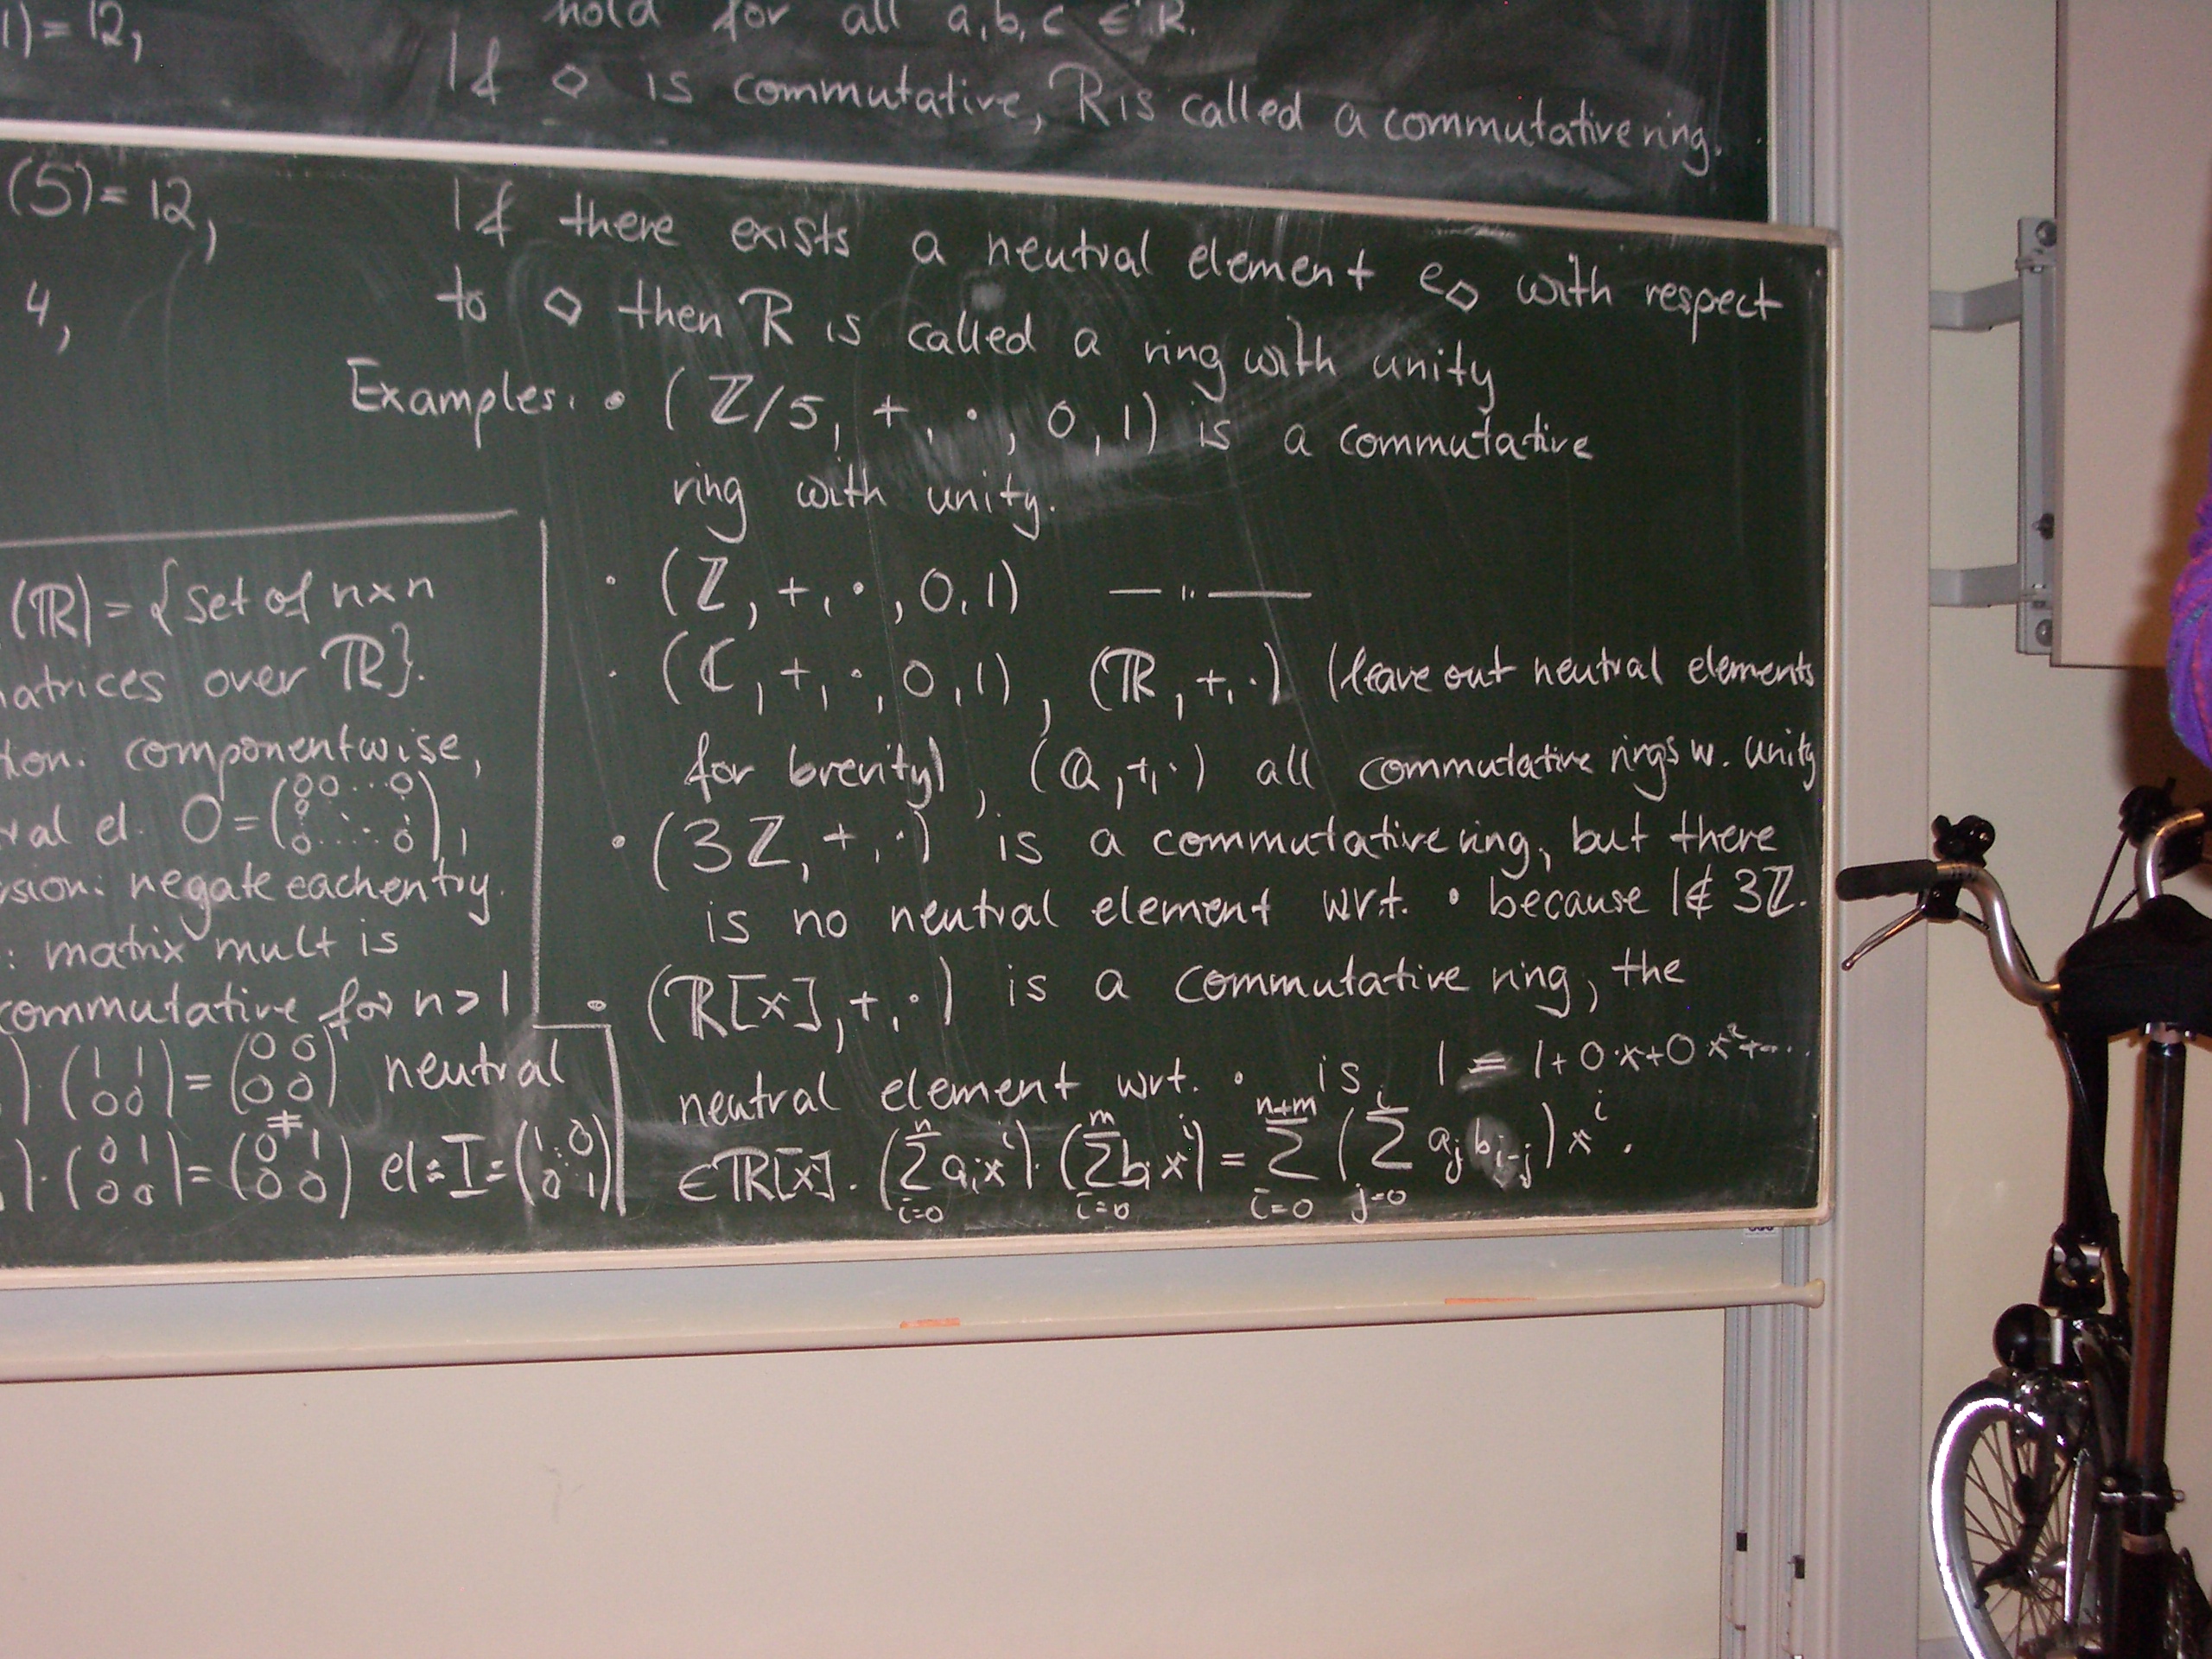 1)=12,
hold for all a,b,c ∈ R.
If ◇ is commutative, R is called a commutative ring.
(5)=12,
4,
If there exists a neutral element e◇ with respect
to ◇ then R is called a ring with unity
Examples: • (ℤ/5, +, ·, 0, 1) is a commutative
ring with unity.
• (ℤ, +, ·, 0, 1) — " —
• (ℂ, +, ·, 0, 1), (ℝ, +, ·) (leave out neutral elements
for brevity), (ℚ, +, ·) all commutative rings w. unity
• (3ℤ, +, ·) is a commutative ring, but there
is no neutral element wrt. · because 1∉ 3ℤ.
• (ℝ[x], +, ·) is a commutative ring, the
neutral element wrt. · is 1 = 1+0·x+0x²+...
∈ℝ[x]. (∑_{i=0}^{n} a_i x^i)·(∑_{i=0}^{m} b_i x^i) = ∑_{i=0}^{n+m} (∑_{j=0}^{i} a_j b_{i-j}) x^i.
(ℝ)={set of n×n
atrices over ℝ}.
tion: componentwise,
ral el. 0=(00...0 0 ... 0....0),
sion: negate each entry.
: matrix mult is
commutative for n>1
)(1 1 00)=(00 00) neutral
≠
)·(01 00)=(01 00) el: I=(1 0 0 1)